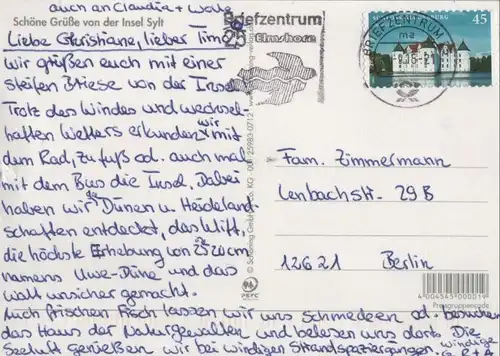 auch an Claudia +
Schöne Grüße von der Insel Sylt
Liebe Christiane, lieber Timo,
wir grüßen euch mit einer
steifen Briese von der Insel.
Trotz des Windes und wechsel-
haften Wetters erkunden wir mit
dem Rad, zu Fuß od. auch mal
mit dem Bus die Insel. Dabei
haben wir die Dünen u. Heideland-
schaften entdeckt, das Kliff,
die höchste Erhebung von
namens Uwe-Düne und das
Watt unsicher gemacht.
Auch frischen Fisch lassen wir uns schmecken od. besuchen
das Haus der Naturgewalten und belesen uns dort. Die
Seeluft genießen wir bei windigen Strandspaziergängen.
Briefzentrum
25 Elmshorn
BRIEFZENTRUM
45
Fam. Zimmermann
Lenbachstr. 29B
12621 Berlin
PEFC
4004545000019
Preisgruppencode